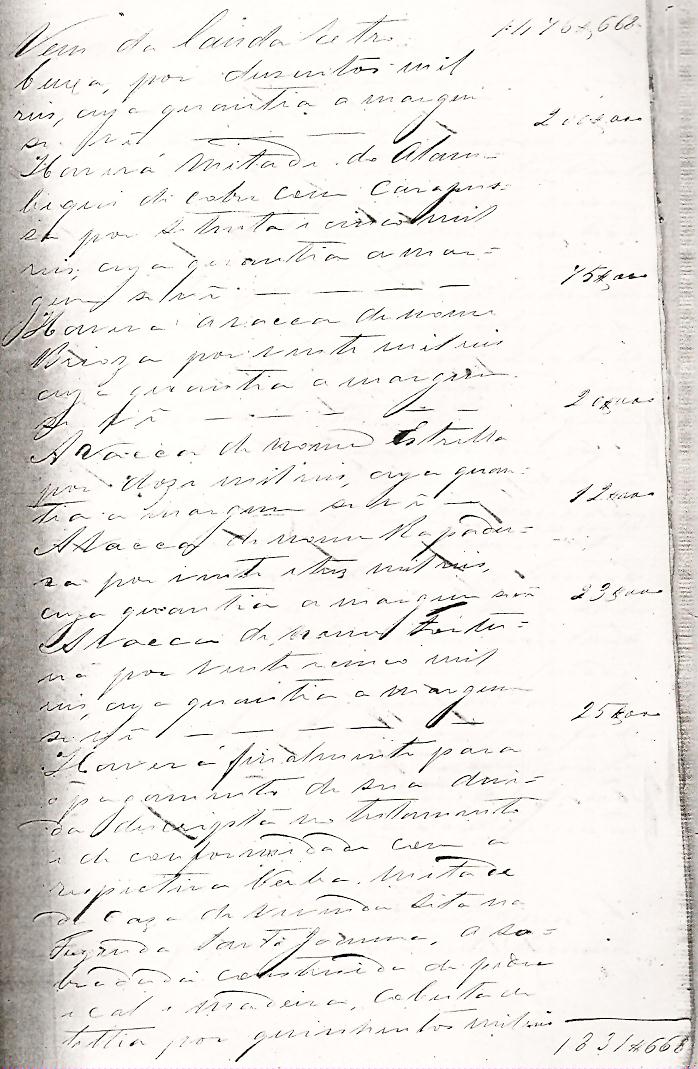 Vem da lauda retro 1:476$668
beiça, por duzentos mil
reis, cuja quantia a margem
se vê — — — 200$000
Haverá mitade do Alam-
bique di cobre com Carapus-
sa por setenta e cinco mil
reis, cuja quantia a mar-
gem se vê — — — — 75$000
Haverá a vacca de nome
Brioza por vinte mil reis
cuja quantia a margem
se vê — — — — — 20$000
A Vacca de nome Estrella
por doze mil reis, cuja quan-
tia a margem se vê — — 12$000
A Vacca de nome Rapadu-
ra por vinte e tres mil reis,
cuja quantia a margem se vê 23$000
A Vacca de nome Fortu-
na por vinte e cinco mil
reis, cuja quantia a margem
se vê — — — — — 25$000
Haverá finalmente para
o pagamento de sua divi-
da descripta no testamento
e de conformidade com a
respectiva verba, mitade
da Caza de vivenda sita na
Fazenda Santa Joanna, a so-
bradada construida de pedra
e cal e madeira, coberta de
telha por quinhentos mil reis
1831$668